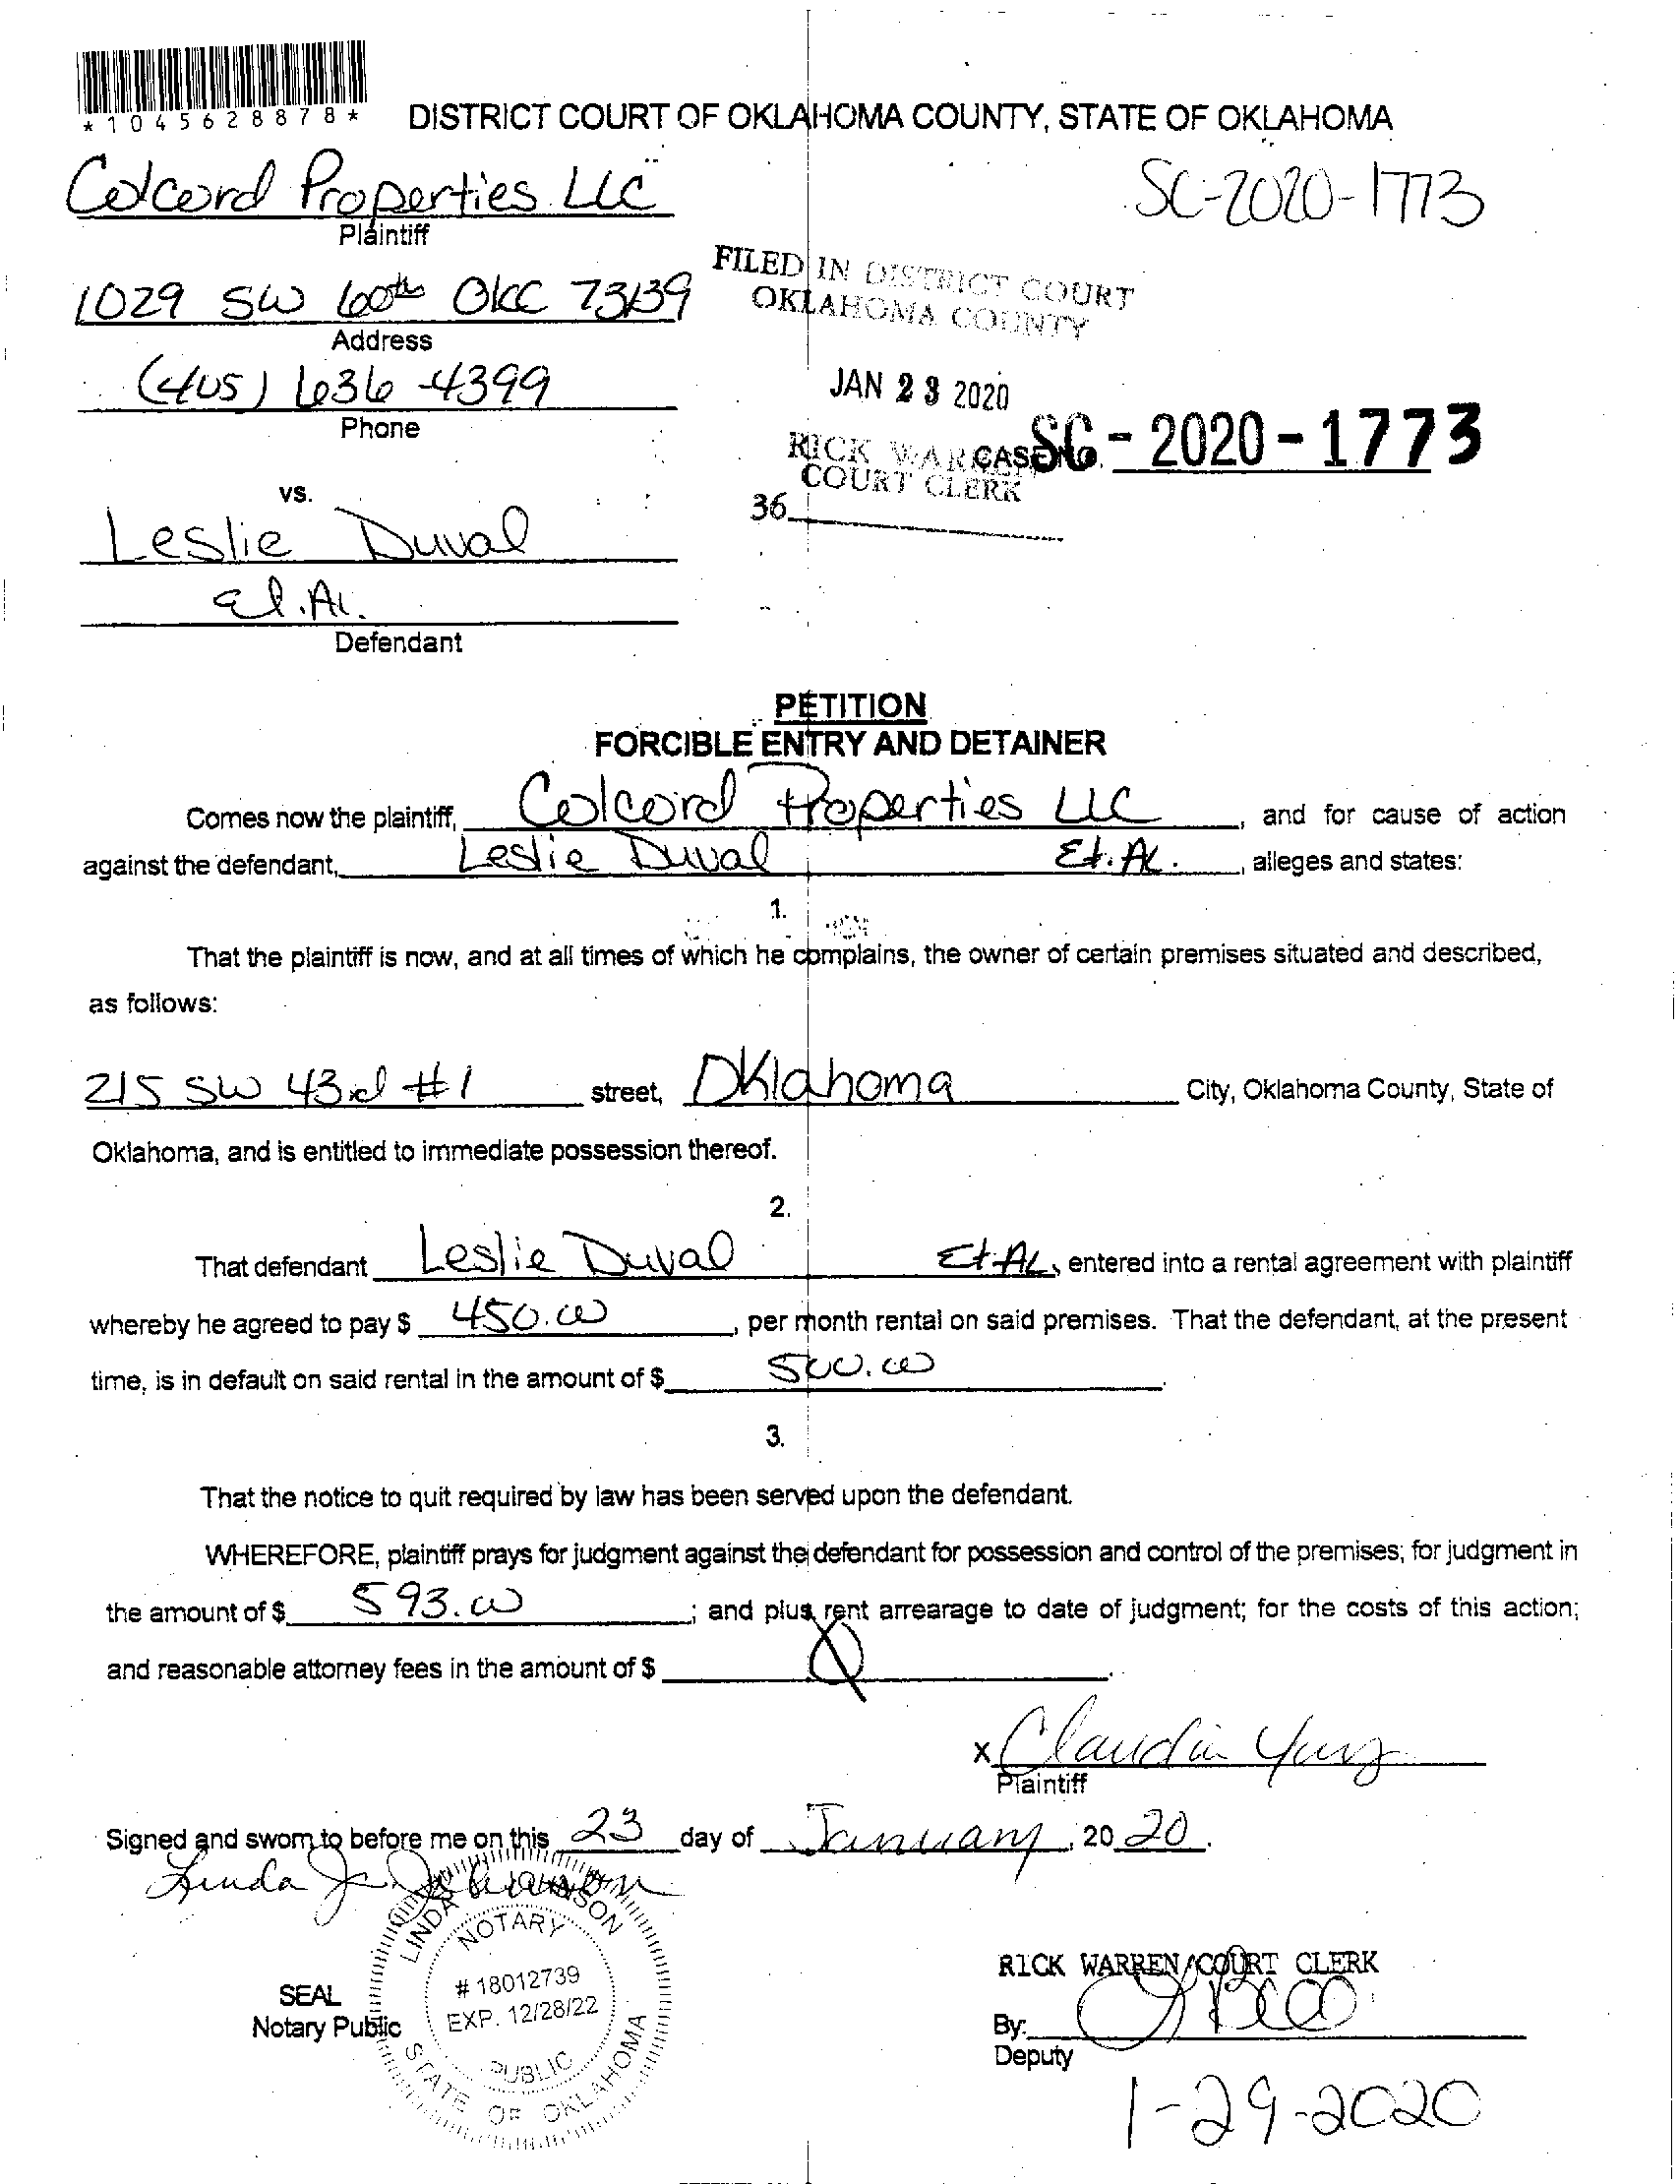 *1045628878*
DISTRICT COURT OF OKLAHOMA COUNTY, STATE OF OKLAHOMA
Colcord Properties LLC
SC-2020-1773
Plaintiff
FILED IN DISTRICT COURT
OKLAHOMA COUNTY
1029 SW 60th OKC 73139
Address
JAN 23 2020
(405) 636-4399
Phone
RICK WARREN
COURT CLERK
CASE NO. SC-2020-1773
36
vs.
Leslie Duval
Et. Al.
Defendant
PETITION
FORCIBLE ENTRY AND DETAINER
Comes now the plaintiff, Colcord Properties LLC, and for cause of action
against the defendant, Leslie Duval Et. AL., alleges and states:
1.
That the plaintiff is now, and at all times of which he complains, the owner of certain premises situated and described,
as follows:
215 SW 43rd #1 street, Oklahoma City, Oklahoma County, State of
Oklahoma, and is entitled to immediate possession thereof.
2.
That defendant Leslie Duval Et AL, entered into a rental agreement with plaintiff
whereby he agreed to pay $ 450.00, per month rental on said premises. That the defendant, at the present
time, is in default on said rental in the amount of $ 500.00.
3.
That the notice to quit required by law has been served upon the defendant.
WHEREFORE, plaintiff prays for judgment against the defendant for possession and control of the premises; for judgment in
the amount of $ 593.00; and plus rent arrearage to date of judgment; for the costs of this action;
and reasonable attorney fees in the amount of $
x Claudia
Plaintiff
Signed and sworn to before me on this 23 day of January, 20 20.
Linda J. Johnson
LINDA JOHNSON
NOTARY
# 18012739
EXP. 12/28/22
PUBLIC
STATE OF OKLAHOMA
SEAL
Notary Public
RICK WARREN COURT CLERK
By:
Deputy
1-29-2020